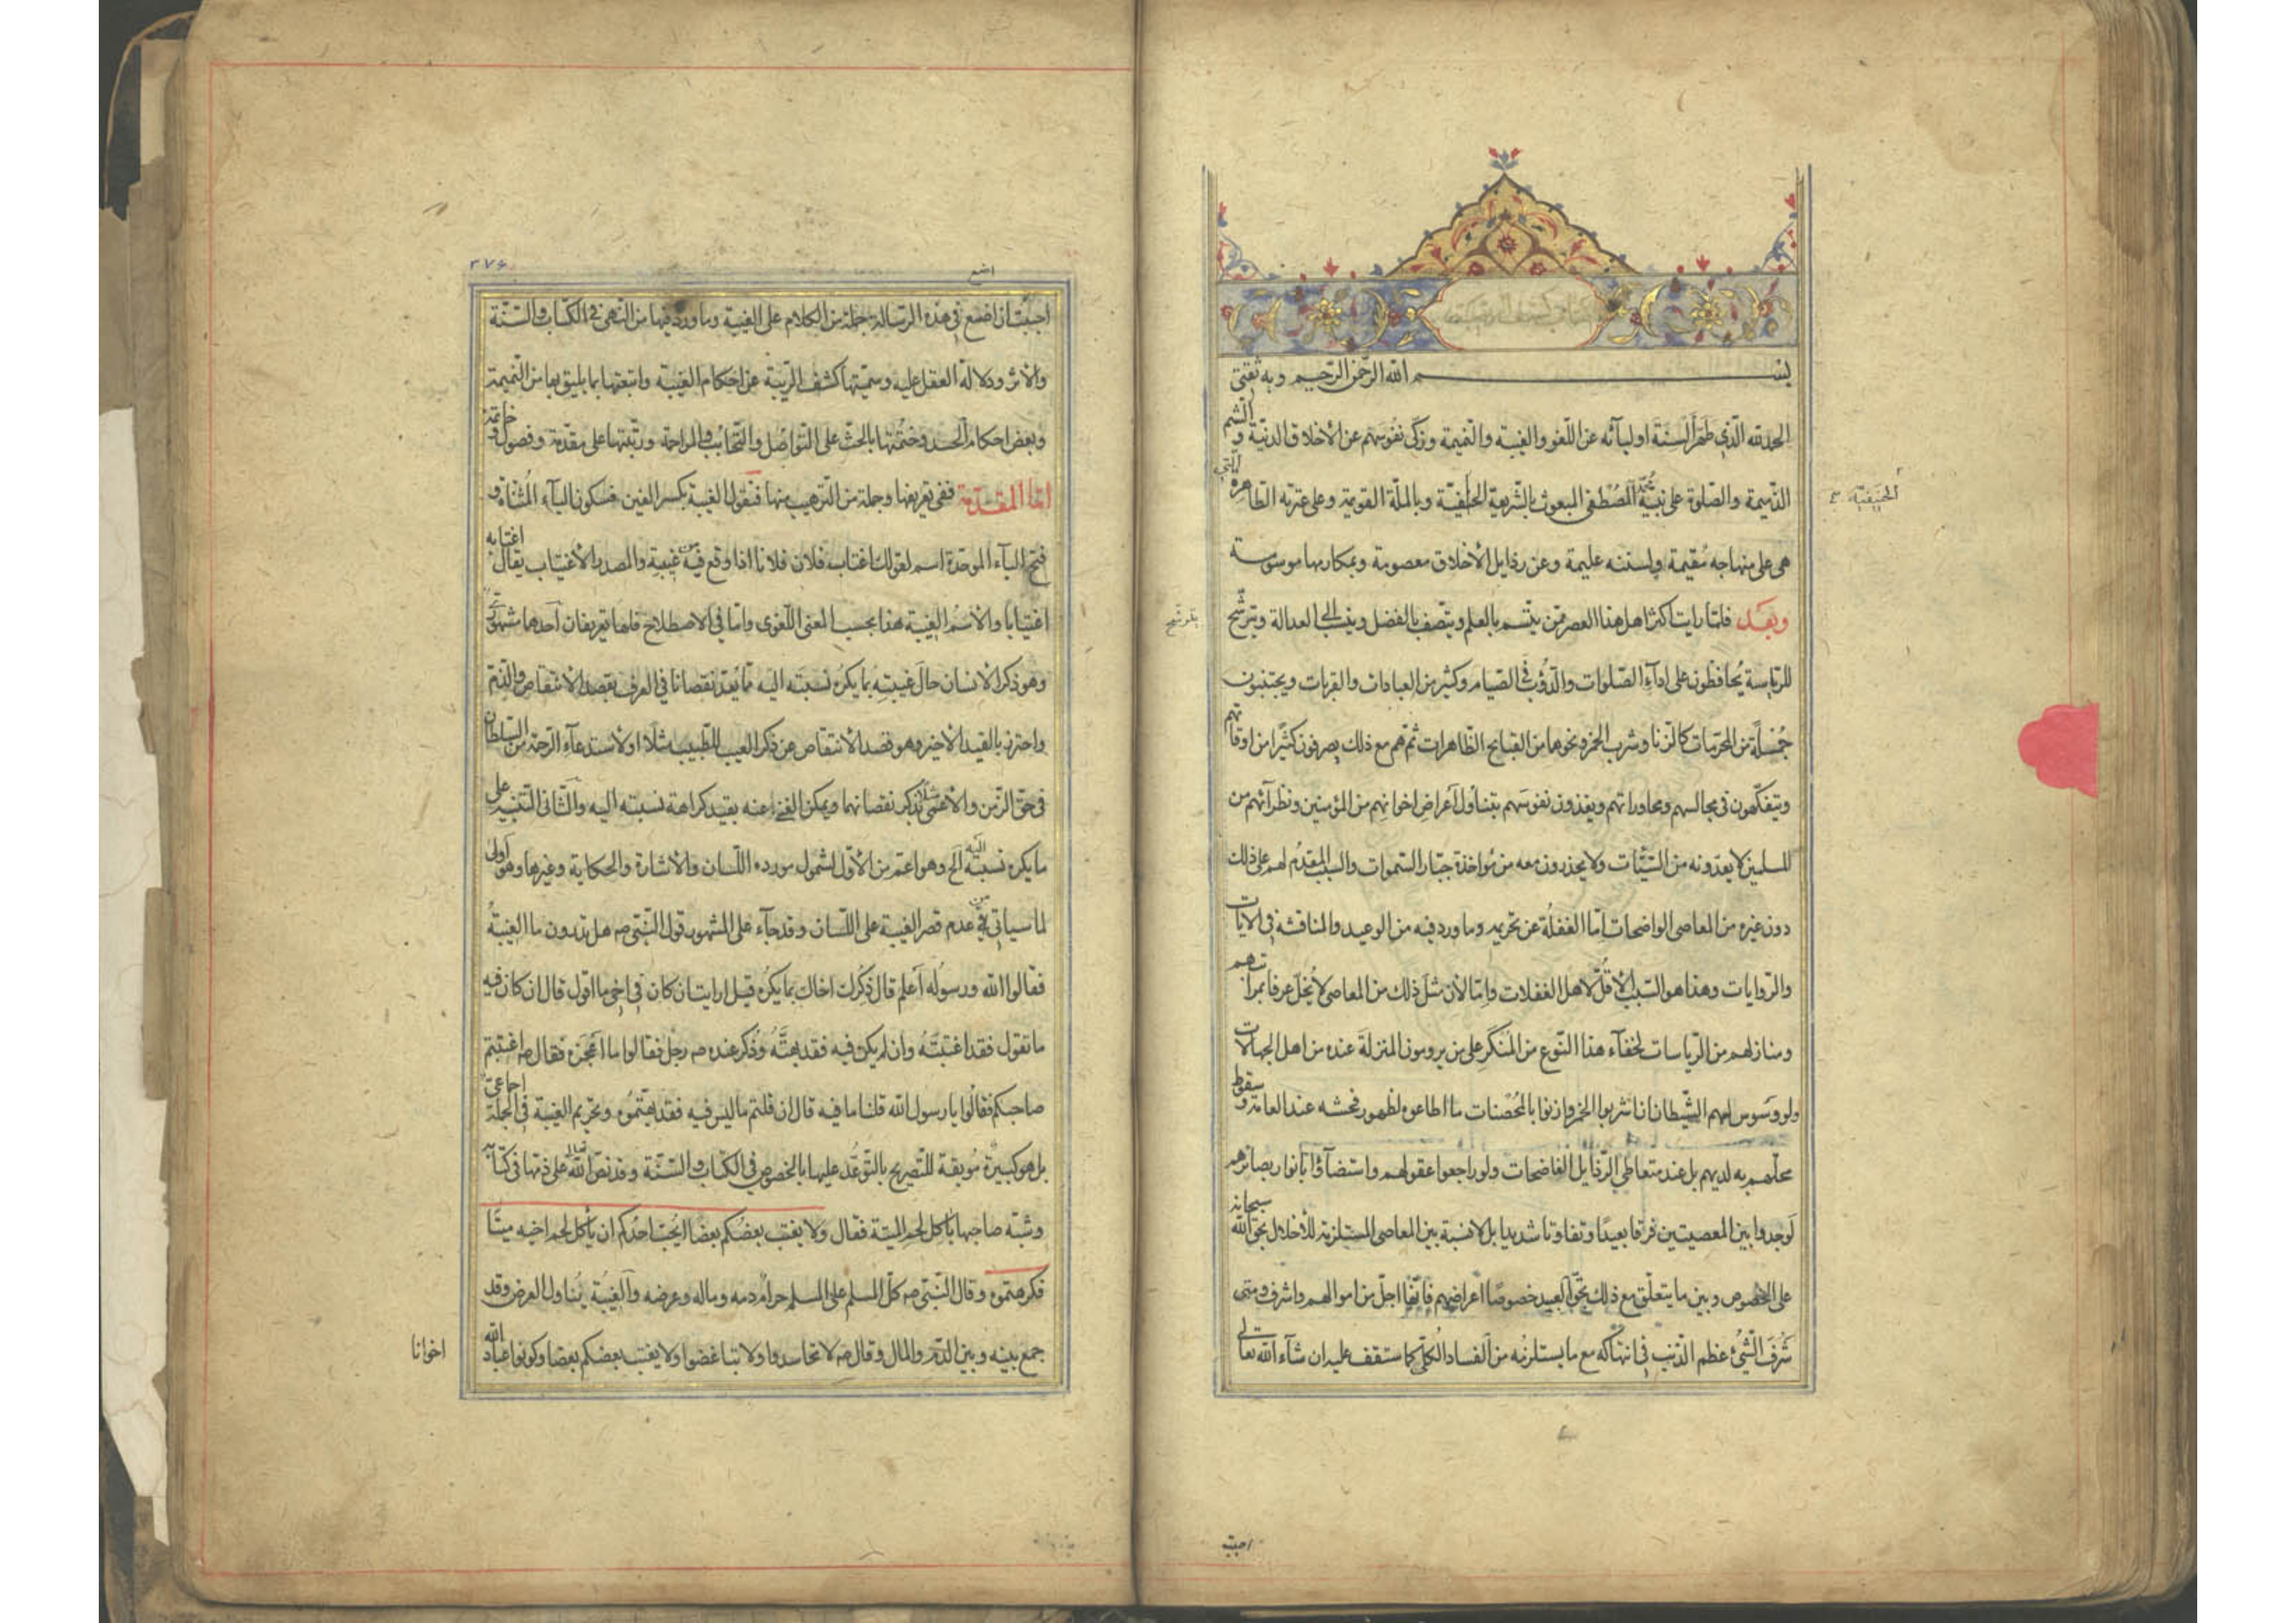 كتاب كشف الريبة
بسم الله الرحمن الرحيم وبه ثقتي
الحمد لله الذي طهر السنة اوليائه عن اللغو والغيبة والنميمة وزكى نفوسهم عن الاخلاق الدنية والشيم
الذميمة والصلوة على نبيه محمد المصطفى المبعوث بالشريعة الحنيفية وبالملة القويمة وعلى عترته الطاهرة التي
الحنيفية
هي على منهاجه مقيمة ولسنته عليمة وعن رذايل الاخلاق معصومة وبمكارمها موسومة
وبعد فلما رايت اكثر اهل هذا العصر ممن يتسم بالعلم ويتصف بالفضل وينسب الى العدالة ويترشح
للرياسة يحافظون على اداء الصلوات والدؤب في الصيام وكثير من العبادات والقربات ويجتنبون
جملة من المحرمات كالزنا وشرب الخمر ونحوها من القبايح الظاهرات ثم هم مع ذلك يصرفون كثيرا من اوقاتهم
ويتفكهون في مجالسهم ومحاوراتهم ويغذون نفوسهم بتناول اعراض اخوانهم من المؤمنين ونظرآئهم من
المسلمين لا يعدونه من السيئات ولا يحذرون معه من مؤاخذة جبار السموات والسبب المقدم لهم على ذلك
دون غيره من المعاصي الواضحات اما الغفلة عن تحريمه وما ورد فيه من الوعيد والمناقشة في الآيات
والروايات وهذا هو السبب الاقل لاهل الغفلات واما لان مثل ذلك من المعاصي لا يخل عرفا بمراتبهم
ومنازلهم من الرياسات لخفاء هذا النوع من المنكر على من يرومون المنزلة عنده من اهل الجهالات
ولو وسوس لهم الشيطان ان اشربوا الخمر وازنوا بالمحصنات ما اطاعوه لظهور فحشه عند العامة وسقوط
محلهم به لديهم بل عند متعاطي الرذايل الفاضحات ولو راجعوا عقولهم واستضآؤا بانوار بصائرهم
لوجدوا بين المعصيتين فرقا بعيدا وتفاوتا شديدا بل لا نسبة بين المعاصي المستلزمة للاخلال بحق الله سبحانه
على الخصوص وبين ما يتعلق مع ذلك بحق العبيد خصوصا اعراضهم فانها اجل من اموالهم واشرف ومتى
شرف الشيء عظم الذنب في انتهاكه مع ما يستلزمه من الفساد الكلي كما ستقف عليه ان شآء الله تعالى
احببت
٣٧٤
اضع
احببت ان اضع في هذه الرسالة جملة من الكلام على الغيبة وما ورد فيها من النهي في الكتاب والسنة
والاثر ودلالة العقل عليه وسميتها كشف الريبة عن احكام الغيبة واتبعتها بما يليق بها من النميمة
وبعض احكام الحسد وختمتها بالحث على التواصل والتحابب والمراحمة ورتبتها على مقدمة وفصول وخاتمة
اما المقدمة ففي تعريفها وجملة من الترهيب منها فنقول الغيبة بكسر الغين فسكون اليآء المثناة و
فتح البآء الموحدة اسم لقولك اغتاب فلان فلانا اذا وقع فيه من غيبته والمصدر الاغتياب يقال اغتابه
اغتيابا والاسم الغيبة هذا بحسب المعنى اللغوي واما في الاصطلاح فلها تعريفان احدهما مشهوري
وهو ذكر الانسان حال غيبته بما يكره نسبته اليه مما يعد نقصانا في العرف بقصد الانتقاص والذم
واحترز بالقيد الاخير وهو قصد الانتقاص عن ذكر العيب للطبيب مثلا او لاستدعآء الرحمة من السلطان
في حق الزمن والاعمى مثلا بذكر نقصانهما ويمكن الغنى عنه بقيد كراهة نسبته اليه والثاني التنبيه على
ما يكره نسبته اليه الخ وهو اعم من الاول لشمول مورده اللسان والاشارة والحكاية وغيرها وهو اولى
لما سياتي من عدم قصر الغيبة على اللسان وقد جآء على المشهور قول النبي ص هل تدرون ما الغيبة
فقالوا الله ورسوله اعلم قال ذكرك اخاك بما يكره قيل ارايت ان كان في اخي ما اقول قال ان كان فيه
ما تقول فقد اغتبته وان لم يكن فيه فقد بهته وذكر عنده ص رجل فقالوا ما اعجزه فقال ص اغتبتم
صاحبكم فقالوا يا رسول الله قلنا ما فيه قال ان قلتم ما ليس فيه فقد بهتموه وتحريم الغيبة في الجملة اجماعي
بل هو كبيرة موبقة للتصريح بالتوعد عليها بالخصوص في الكتاب والسنة وقد نص الله تعالى على ذمها في كتابه
وشبه صاحبها بآكل لحم الميتة فقال ولا يغتب بعضكم بعضا ايحب احدكم ان يأكل لحم اخيه ميتا
فكرهتموه وقال النبي ص كل المسلم على المسلم حرام دمه وماله وعرضه والغيبة يتناول العرض وقد
جمع بينه وبين الدم والمال وقال ص لا تحاسدوا ولا تباغضوا ولا يغتب بعضكم بعضا وكونوا عباد الله
اخوانا